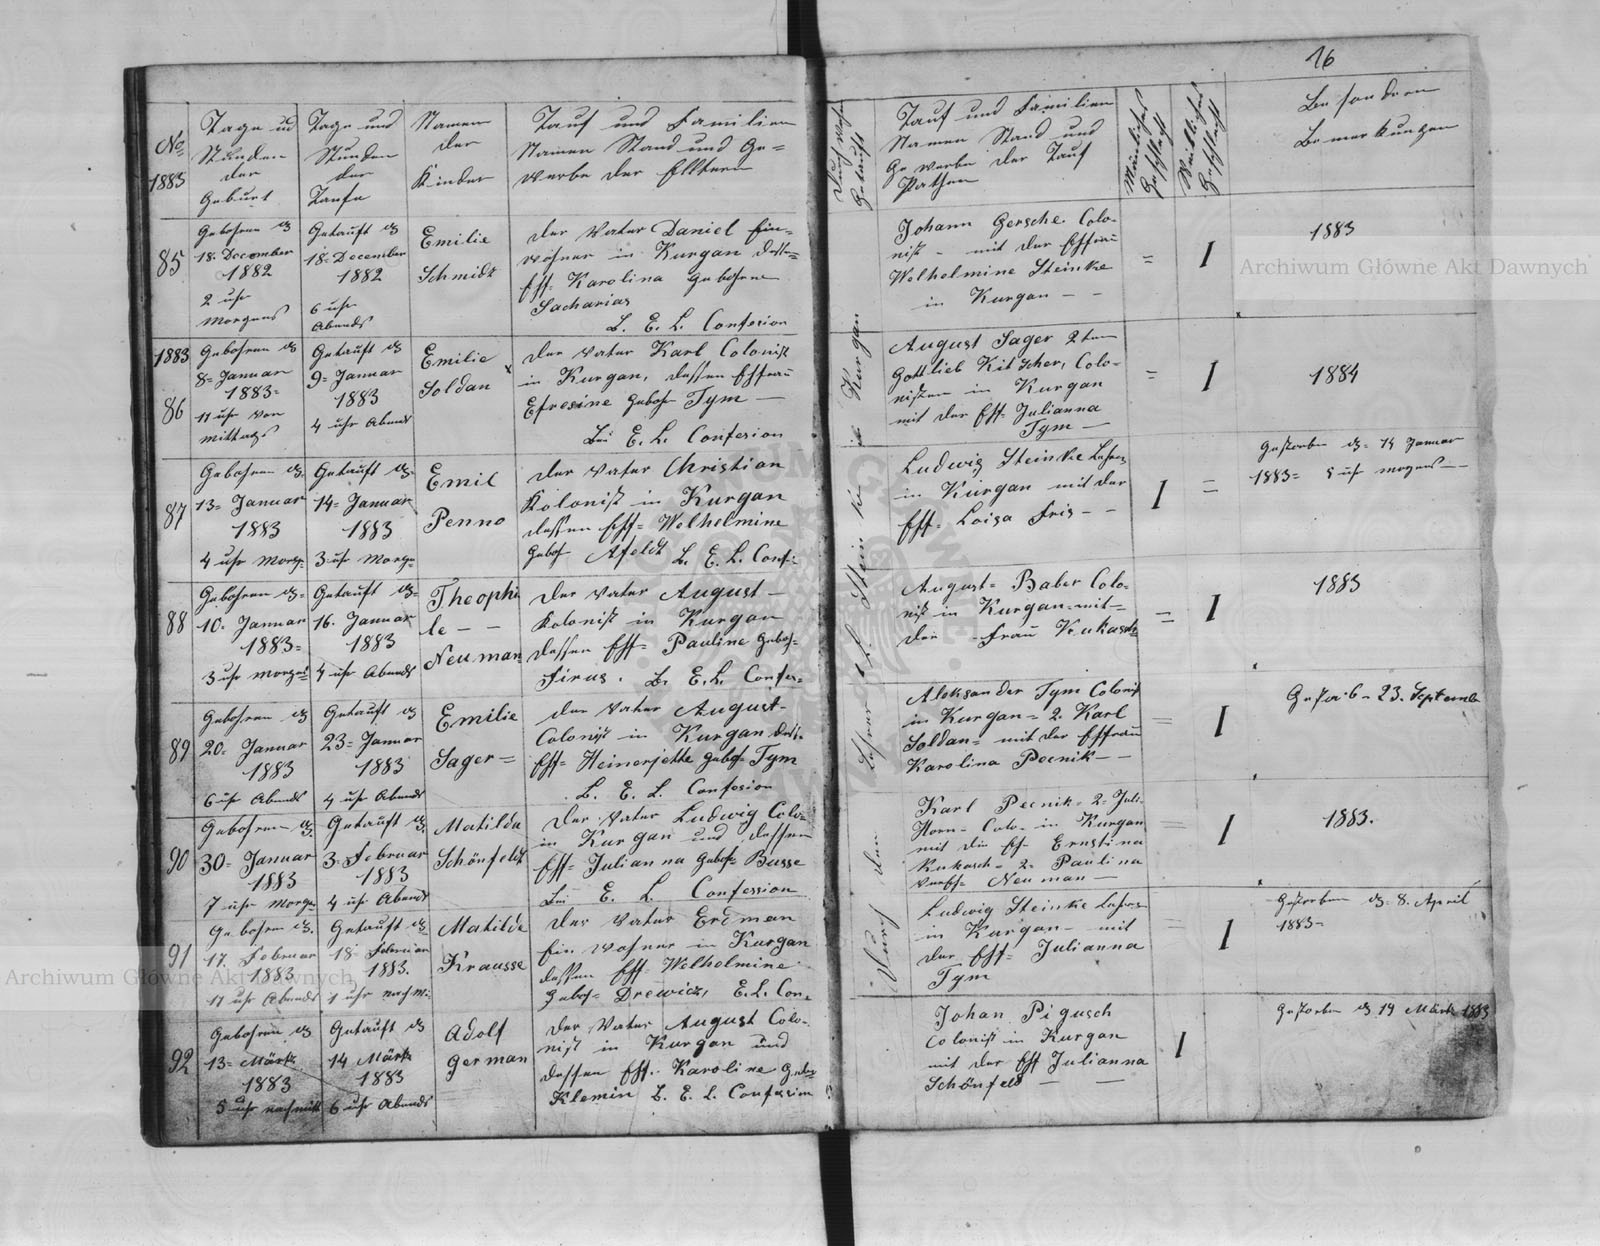 16
No
1883
Tage und
Stunden
der
Geburt
Tage und
Stunden
der
Taufe
Namen
der
Kinder
Tauf und Familien
Namen Stand und Ge=
werbe der Elltern
Getauft
Tauf und Familien
Namen Stand und
Gewerbe der Tauf
Pathen
Männliches
Geschlecht
Weibliches
Geschlecht
Besonderen
Bemerkungen
85
Gebohren d
18. December
1882
2 uhr
Morgens
Getauft d
18= December
1882
6 uhr
Abends
Emilie
Schmidt
der Vater Daniel Ein=
wohner in Kurgan
Ehf= Karolina Gebohrne
Sacharias
B. E. L. Confesion
Johann Gersche Colo-
nist - mit der Ehfrau
Welhelmine Steinke
in Kurgan - -
= I
1883
1883
86
Gebohren d
8= Januar
1883=
11 uhr Vor
mittags
Getauft d
9= Januar
1883
4 uhr Abends
Emilie
Soldan
der Vater Karl Colonist
in Kurgan, dessen Ehfrau
Efresine Geboh Tym -
Bei E. L. Confesion
August Sager 2ten
Gottlieb Kitscher, Colo-
nisten in Kurgan
mit der Ehf= Julianna
Tym -
= I
1884
87
Gebohren d.
13= Januar
1883
4 uhr Morg=
Getauft d=
14= Januar
1883
3 uhr Morg=
Emil
Penno
der Vater Christian
Kolonist in Kurgan
dessen Ehf= Welhelmine
Geboh Afeldt B. E. L. Conf=
Ludwig Steinke Lehrer
in Kurgan mit der
Ehf= Loisa Fris - -
I =
Gestorben d= 14 Januar
1883= 5 uhr morgens -
88
Gebohren d=
10= Januar
1883=
3 uhr morgens
Getauft d=
16. Januar
1883
4 uhr Abends
Theophi
le - -
Neuman
der Vater August -
Kolonist in Kurgan
dessen Ehf= Pauline Geboh=
Firus. B. E. L. Confes=
August= Baber Colo-
nist in Kurgan = mit=
der - Frau Kukasch=
= I
1883
89
Gebohren d
20= Januar
1883
6 uhr Abends
Getauft d
23= Januar
1883
4 uhr Abends
Emilie
Sager =
der Vater August-
Colonist in Kurgan dess=
Ehf= Heinerjette Geboh= Tym
B. E. L. Confesion
Aleksander Tym Colonist
in Kurgan = 2. Karl
Soldan= mit der Ehfrau
Karolina Pecnik - -
= I
23. Septemb
90
Gebohren d.
30= Januar
1883
7 uhr Morgen
Getauft d.
3= Februar
1883
4 uhr Abends
Matilda
Schönfeldt
der Vater Ludwig Colo=
in Kurgan und dessen
Ehf= Julianna Geboh= Busse
Bei E. L. Confession
Karl Pecnik= 2= Juli-
Horn- Colo- in Kurgan
mit die Eh- Ernstina
Kukasch= 2= Paulina
Neuman -
= I
1883.
91
Gebohren d.
17. Februar
1883
11 uhr Abends
Getauft d.
18= Februar
1883.
1 uhr nachm:
Matilde
Krausse
der Vater Erdman
Einwohner in Kurgan
dessen Ehf= Welhelmine
Geboh= Drewicz, E. L. Con.
Ludwig Steinke Lehrer
in Kurgan - mit
der Ehf= Julianna
Tym
= I
Gestorben d= 8. April
1883-
92
Gebohren d
13= Märtz
1883
5 uhr nachmitt
Getauft d
14 Märtz
1883
6 uhr Abends
Adolf
German
der Vater August Colo-
nist in Kurgan und
dessen Ehf. Karoline Gebo
Klemin B. E. L. Confesion
Johan Pigusch
Colonist in Kurgan
mit der Ehf Julianna
Schönfeld - -
I
Gestorben d 19 Märtz 1883
Durch den Lehrer L. Steinke in Kurgan
Archiwum Główne Akt Dawnych
Archiwum Główne Akt Dawnych